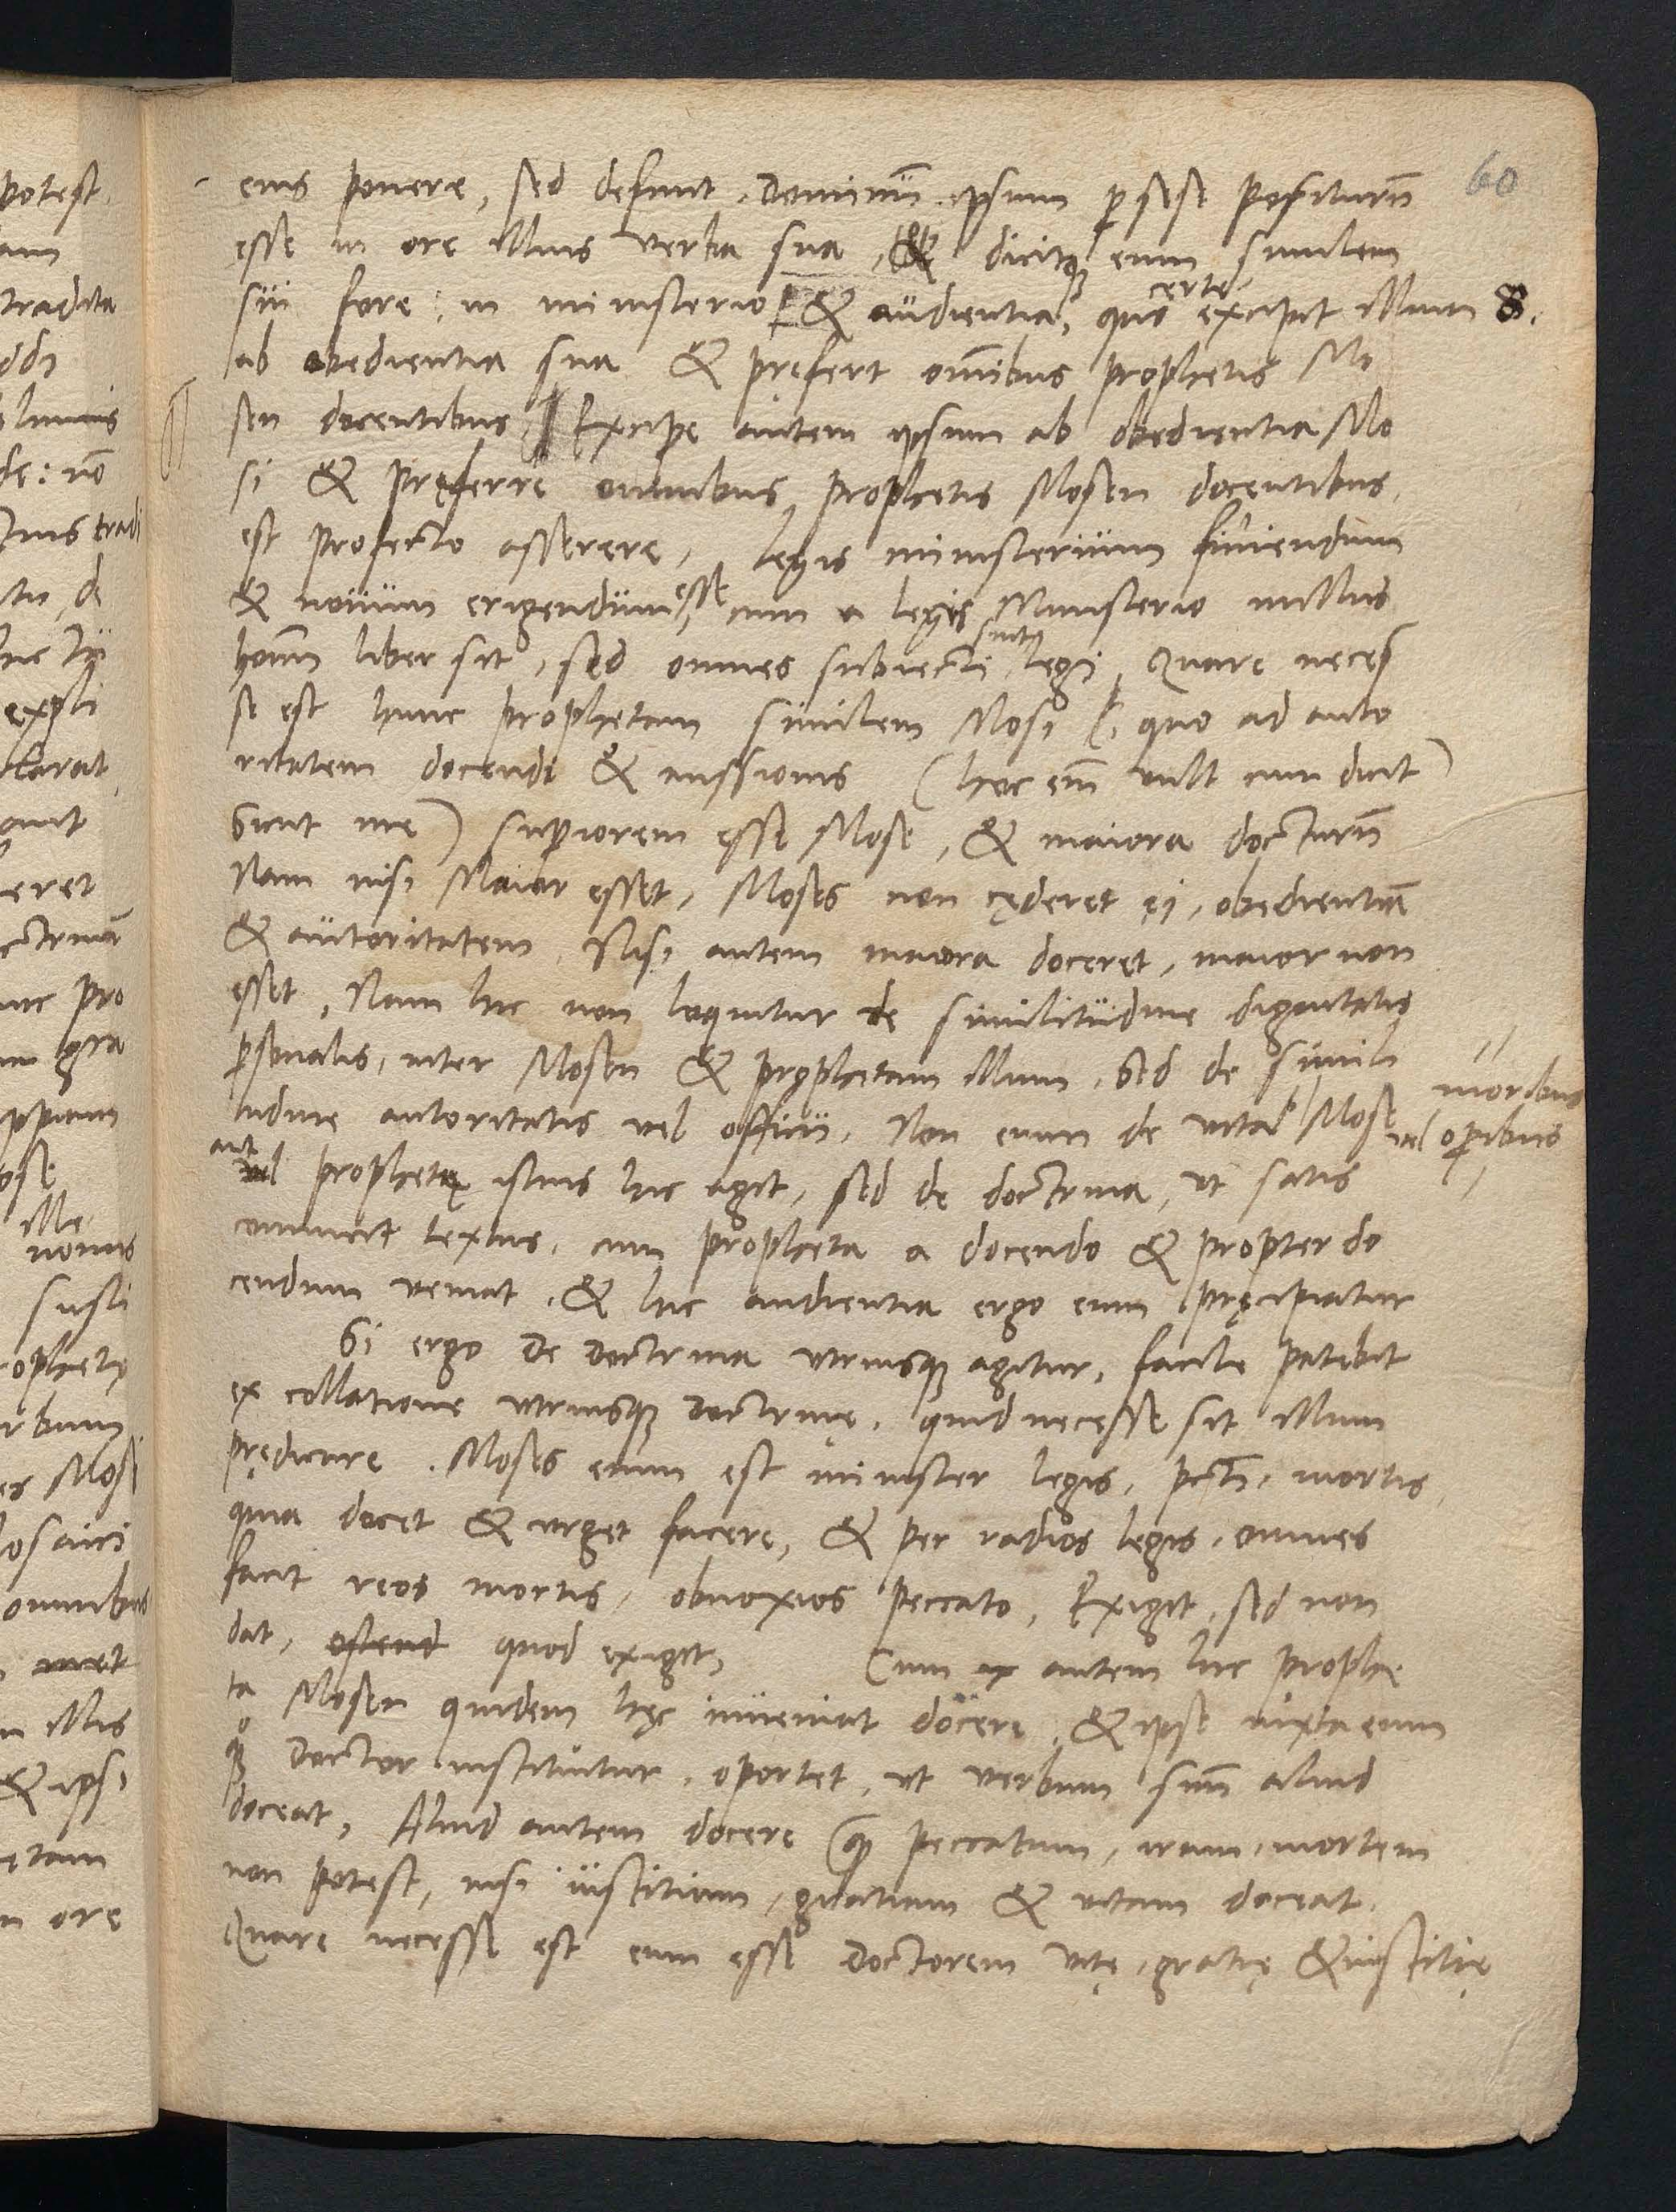 60
eius ponere, sed definit. Dominū ipsum p̄ sese positurū
esse in ore illius verba sua, & dicitq̧ eum similem
sui fore: in ministerio & audientia, quo certe excipit illum 8.
ab obedientia sua & pręfert om̄ibus prophetis Mo
sen docentibus, Excipe autem ipsum ab obedientia Mo
si & pręferre omnibus prophetis Mosen docentibus,
est profecto asserere, legis ministerium finiendum
& nouum erigendum esse, cum a legis Ministerio nullus
hoīm liber sit, sed omnes subiecti sint legi, Quare neces
se est hunc prophetam similem Mosi, quo ad auto
ritatem docendi & missionis (hoc em̄ vult cum dicit
Sicut me) sup̄iorem esse Mose, & maiora docturū
Nam nisi Maior esset, Moses non cęderet ei, obedientiā
& autoritatem, Nisi autem maiora doceret, maior non
esset, Nam hic non loquitur de similitudine dignitatis
p̄sonalis, inter Mosen & prophetam illum, Sed de simili
tudine autoritatis vel officii, Non enim de vita Mose
moribus
vel op̄ibus
aut
vel prophetę istius hic agit, sed de doctrina, ut satis
conuincit textus, cum propheta a docendo & propter do
cendum veniat, & hic audientia ergo eum pręcipiatur
Si ergo De Doctrina vtriusq̧ agitur, facile patebit
ex collatione vtriusq̧ Doctrinę, quid necesse sit illum
prędicare. Moses enim est minister legis, pcti, mortis,
quia docet & vrget facere, & per radios legis, omnes
facit reos mortis, obnoxios peccato, Exigit, sed non
dat, ostend quod exigit, Cum autem hic prophe
ta Mosen quidem hęc inueniat docere, & ipse iuxta eum
q̧ Doctor instituitur, oportet, ut verbum suū aliud
doceat, Aliud autem docere q̧ peccatum, iram, mortem
non potest, nisi iustitiam, gratiam & vitam doceat.
Quare necesse est eum esse Doctorem vitę, gratię & iustitię
potest.
am
tradita
expli
larat
eret
nouus
rbum
Mosi
omnibus
illis
& ipsi
ętam
ore